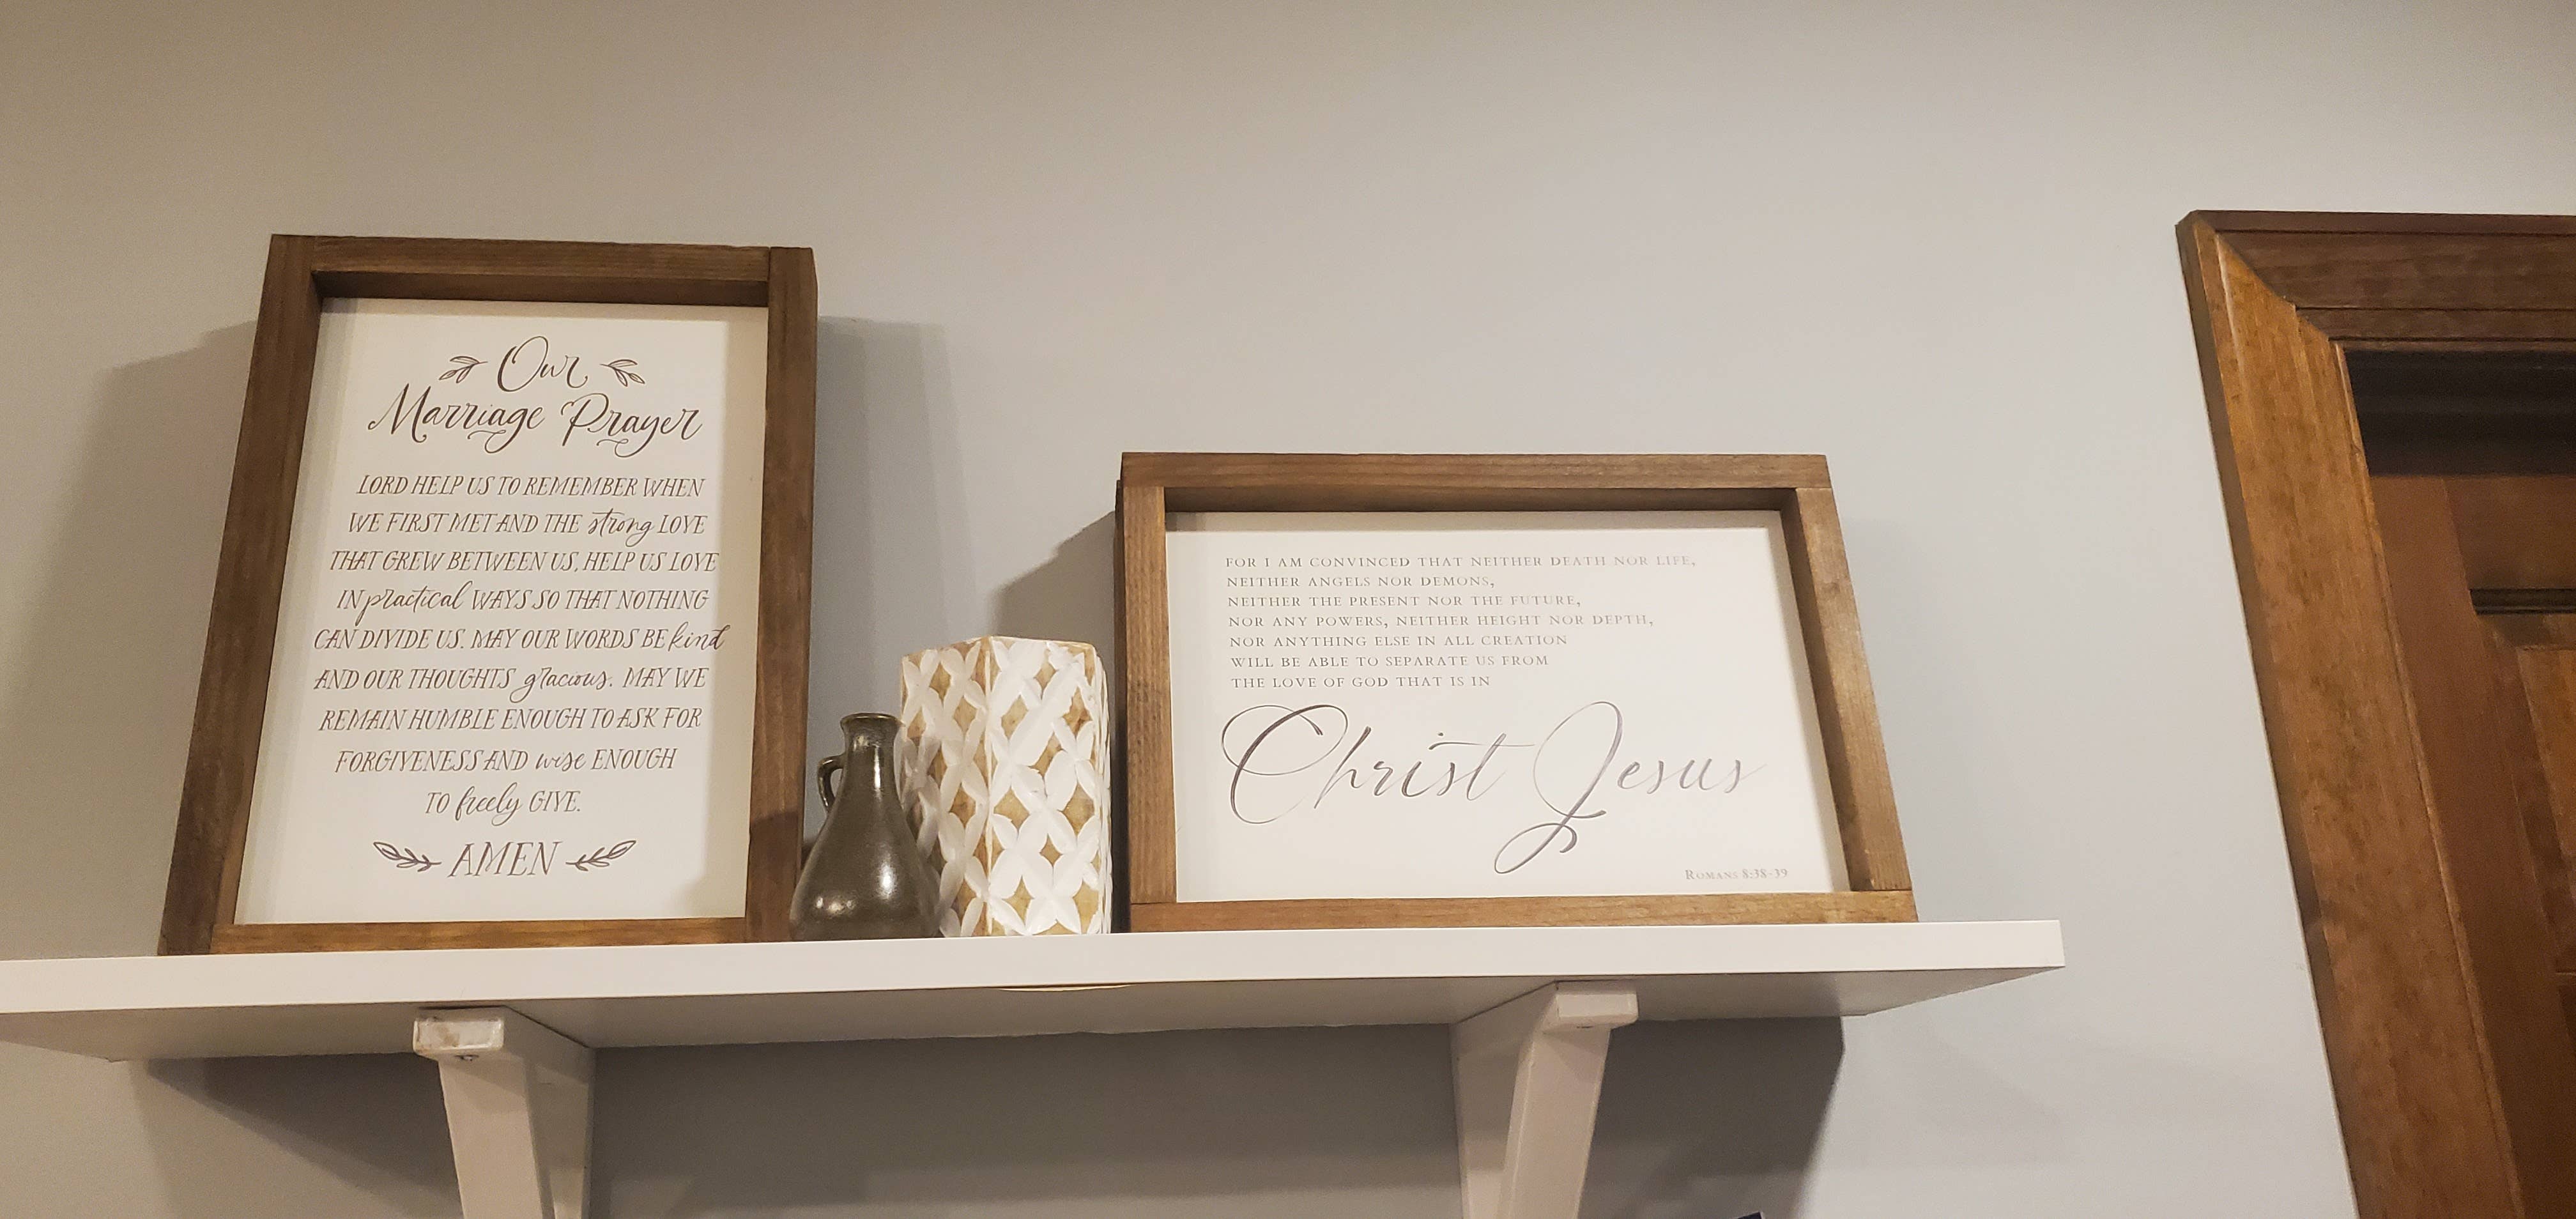 Our
Marriage Prayer
LORD HELP US TO REMEMBER WHEN
WE FIRST MET AND THE strong LOVE
THAT GREW BETWEEN US, HELP US LOVE
IN practical WAYS SO THAT NOTHING
CAN DIVIDE US. MAY OUR WORDS BE kind
AND OUR THOUGHTS gracious. MAY WE
REMAIN HUMBLE ENOUGH TO ASK FOR
FORGIVENESS AND wise ENOUGH
TO freely GIVE.
AMEN
FOR I AM CONVINCED THAT NEITHER DEATH NOR LIFE,
NEITHER ANGELS NOR DEMONS,
NEITHER THE PRESENT NOR THE FUTURE,
NOR ANY POWERS, NEITHER HEIGHT NOR DEPTH,
NOR ANYTHING ELSE IN ALL CREATION
WILL BE ABLE TO SEPARATE US FROM
THE LOVE OF GOD THAT IS IN
Christ Jesus
ROMANS 8:38-39